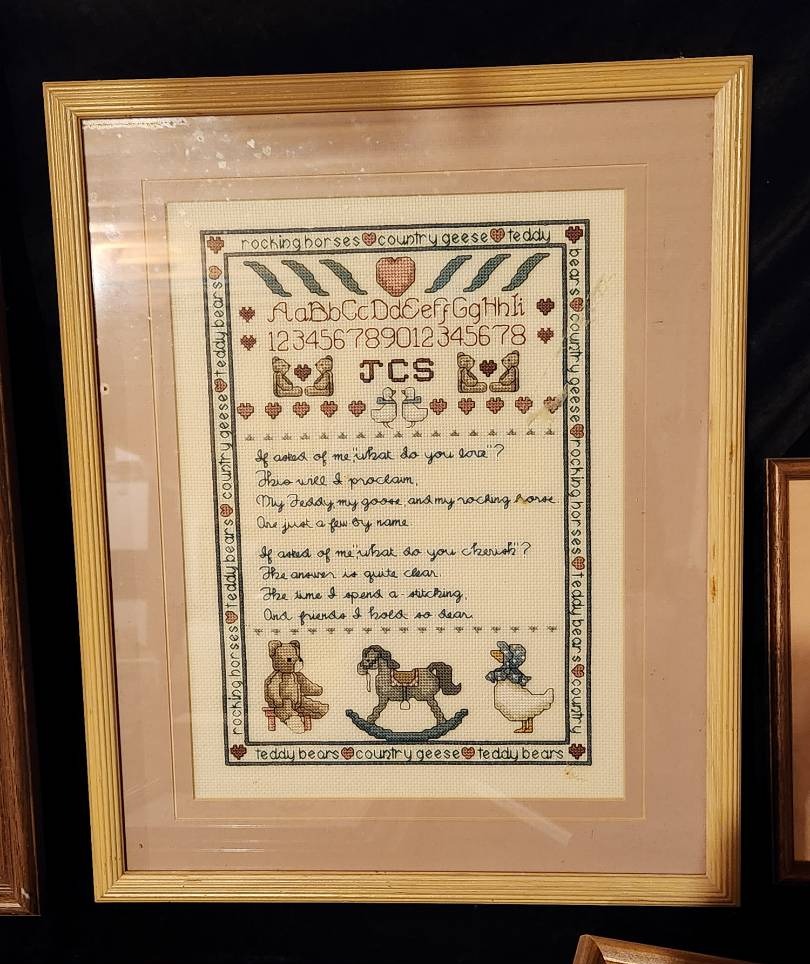 rocking horses country geese teddy
bears country geese rocking horses teddy bears country
AaBbCcDdEeFfGgHhIi
123456789012345678
JCS
If asked of me "what do you love"?
This will I proclaim,
My Teddy, my goose, and my rocking horse
Are just a few by name
If asked of me "what do you cherish"?
The answer is quite clear.
The time I spend a-stitching,
And friends I hold so dear.
teddy bears country geese teddy bears
rocking horses teddy bears country geese teddy bears